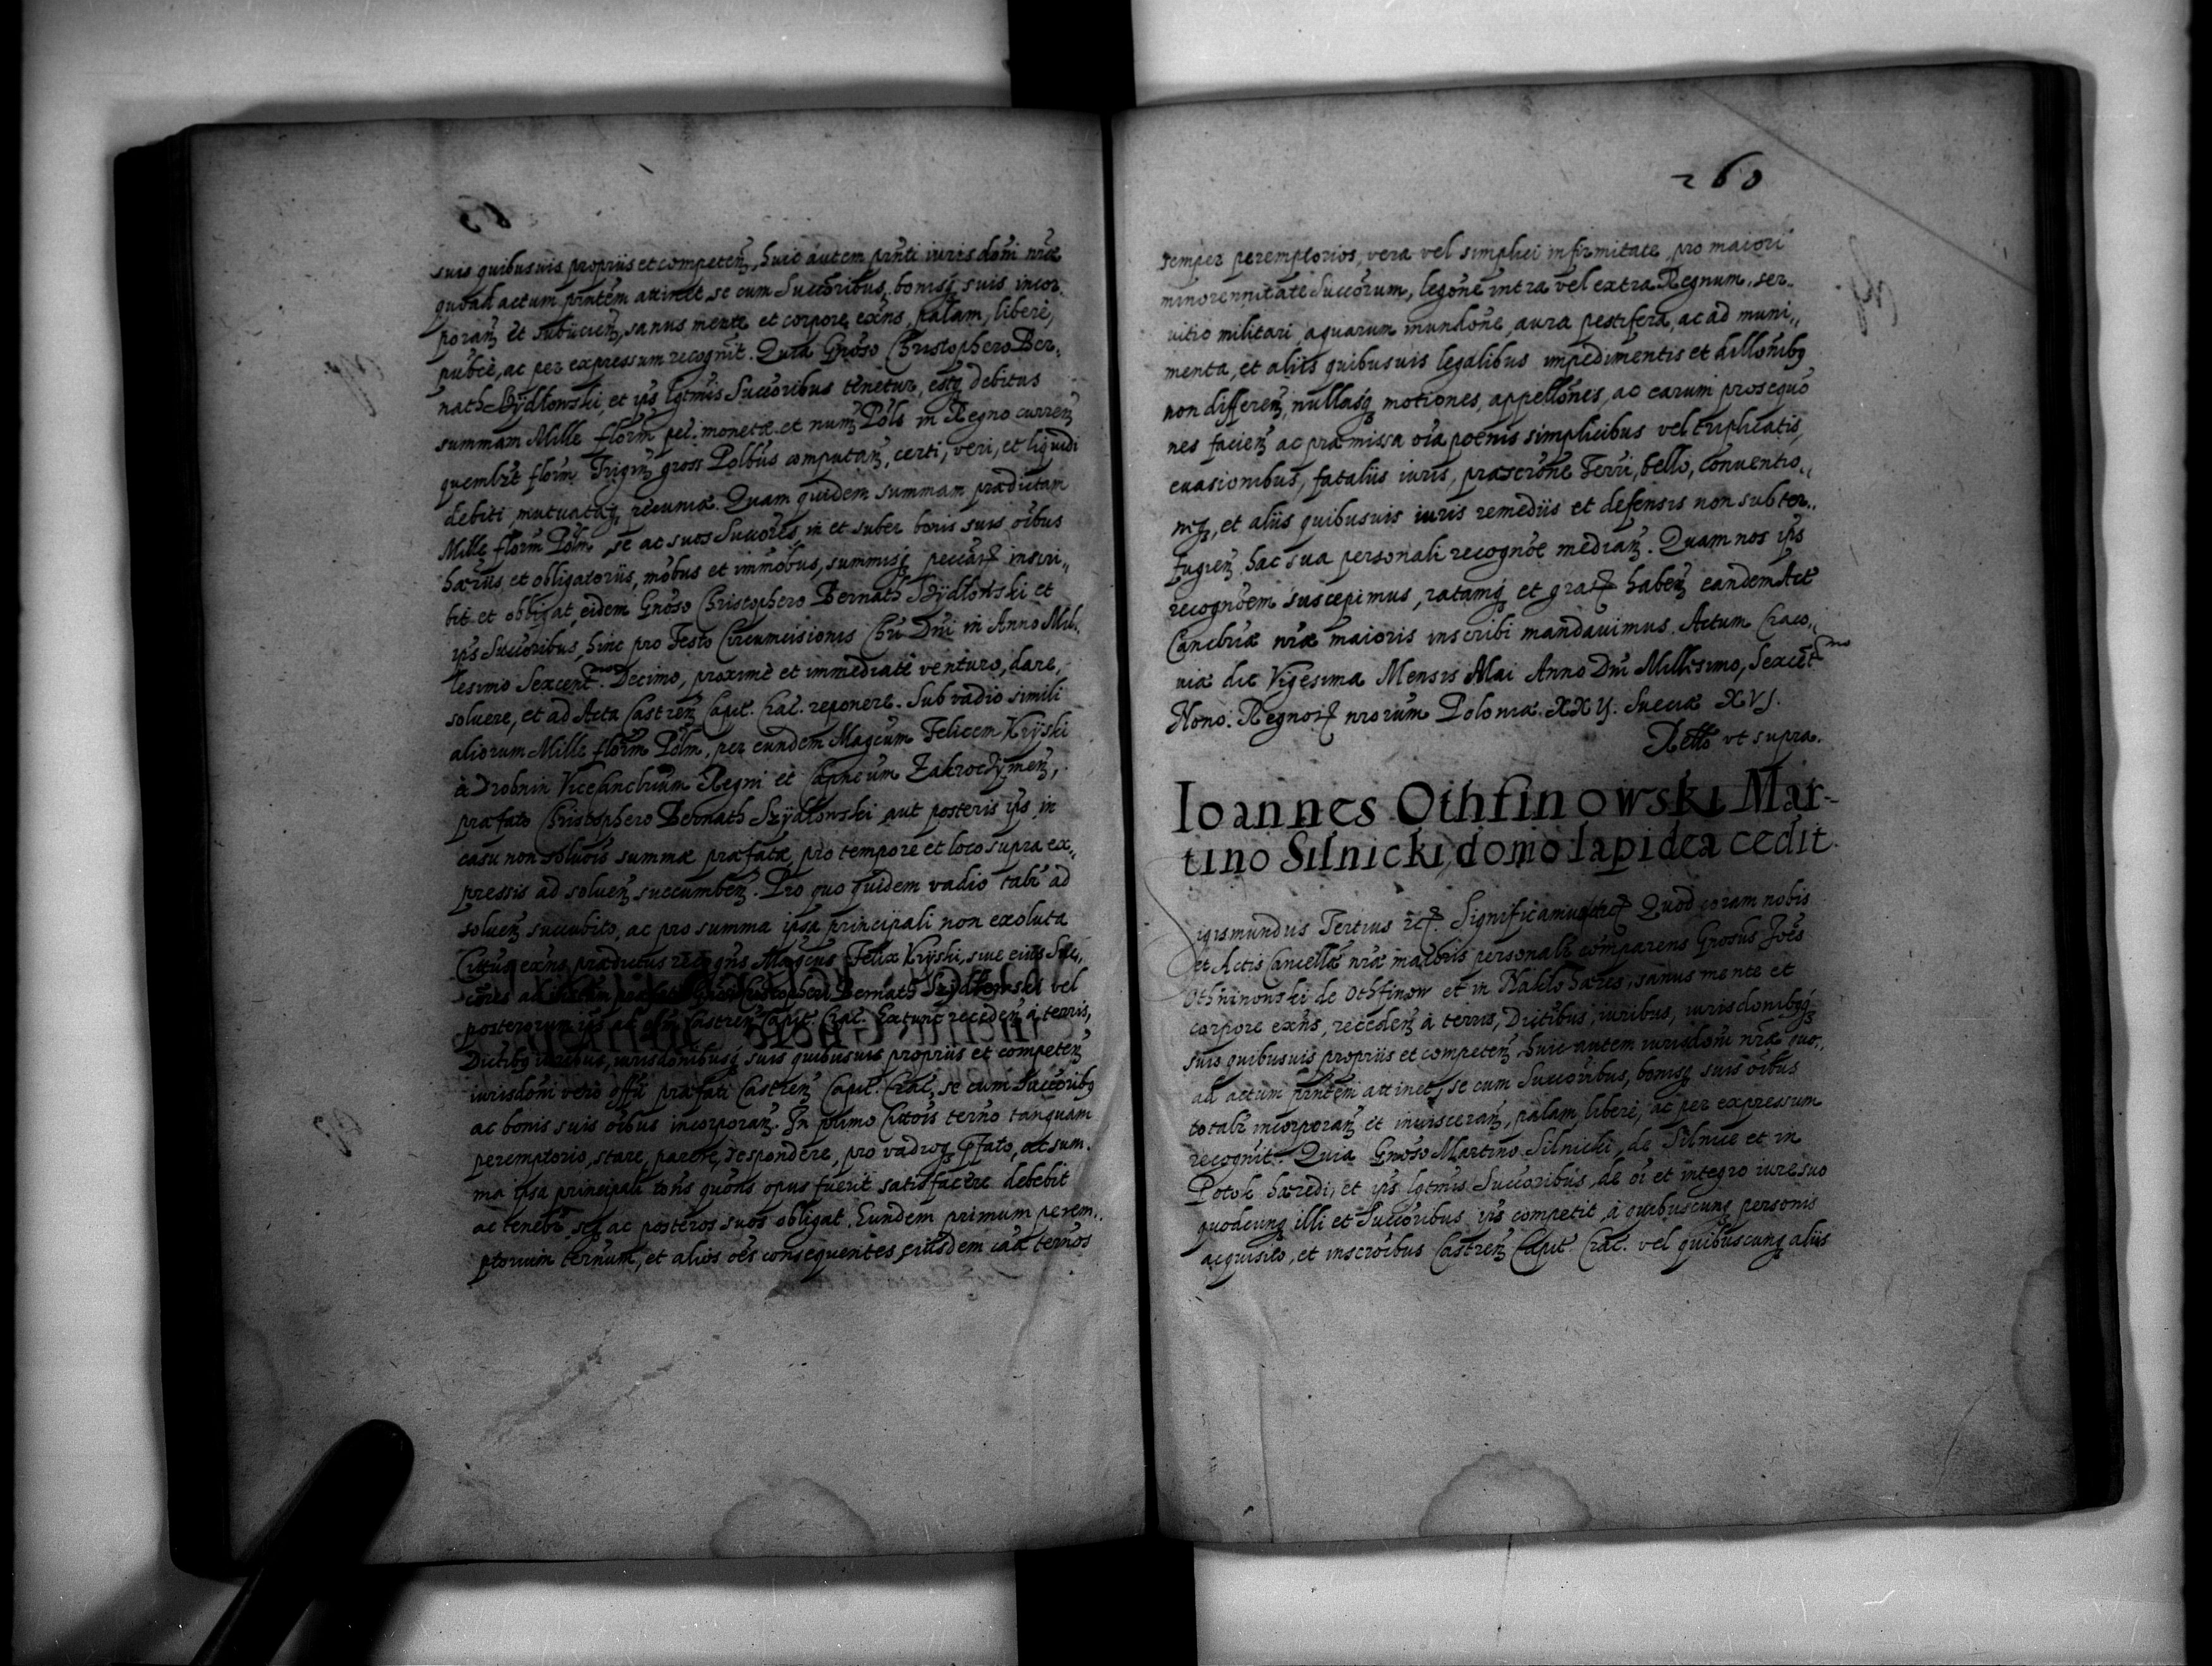 suis quibusuis propriis et competeñ, huic autem pñti iuris doñi nr̃æ
quoad actum pñtem attinet, se cum Succoribus, bonisq̃ suis incor¸
porañ et subijcieñ, sanus mente et corpore exñs, palam, liberè,
publicè, ac per expressum recognit. Quia Gnõso Christophero Ber¸
nath Szÿdłowski, et ipsˢ lgtmis Succoribus tenetur, estq̃ debitus
summam Mille florm̃ pec. monetæ et num̃ Põls in Regno curreñ
quemlr̃t florm̃ Trigiñ gross Polbus computañ, certi, veri, et liquidi
debiti, mutuatæq̃, pecuniæ. Quam quidem summam prædictam
Mille florm̃ Põlm, se ac suos Succores, in et super bonis suis oĩbus
hæriis et obligatoriis, mõbus et immõbus, summisq̃ peccar̃ inscri¸
bit et obligat, eidem Gnõso Christophero Bernath Szÿdłowski et
ipˢ Succoribus, hinc pro Festo Circumcisionis Chr̃i Dñi in Anno Mil¸
lesimo Sexcentᵐᵒ. Decimo, proximè et immediatè venturo, dare,
soluere, et ad Acta Castreñ Capit. Crac. reponere. Sub vadio simili
aliorum Mille florm̃ Põlm, per eundem Magcum Felicem Krÿski
à Drobnin Vicecancrium Regni et Capneum Zakroczÿmeñ,
præfato Christophero Bernath Szÿdłowski aut posteris ipˢ, in
casu non solutõis summæ præfatæ, pro tempore et loco supra ex¸
pressis ad solueñ succumbeñ. Pro quo quidem vadio talr̃ ad
solueñ succubito, ac pro summa ipsa principali non exoluta
Citatus exñs prædictus recogñs Magcus Felix Krÿski, siue eius Suc¸
cores ad instam præfati Gnõsi Christopheri Bernath Szÿdłowski vel
posterorum ipˢ ad offm̃ Castreñ Capit. Crac. Extunc recedeñ à terris,
Dictibq̃ iuribus, iurisdonibusq̃ suis quibusuis propriis et competeñ
iurisdoñi vero offii præfati Castreñ Capit. Crac. se cum Succoribq̃
ac bonis suis oĩbus incorporañ. In primo Citõis ter̃no tanquam
peremptorio, stare, parere, respondere, pro vadioq̃ pfato, ac sum¸
ma ipsa principali toñs quoñs opus fuerit satisfacere debebit
ac tenebr̃ seq̃ ac posteros suos obligat. Eundem primum perem¸
ptorium ter̃num, et alios oẽs consequentes eiusdem cãæ ter̃nos
260
semper peremptorios, vera vel simplici infirmitate, pro maiori
minorennitate Succorum, legoñe intra vel extra Regnum, ser¸
uitio militari, aquarum inundoñe, aura pestifera, ac ad muni¸
menta, et aliis quibusuis legalibus impedimentis et dillonibq̃
non differeñ, nullasq̃ motiones, appelloñes, ac earum prosequo
nes facieñ ac præmissa oĩa poenis simplicibus vel triplicatis,
euasionibus, fataliis iuris, præscroñe Terri, bello, conuentio¸
niq̃, et aliis quibusuis iuris remediis et defensis non subter¸
fugieñ, hac sua personali recognõe mediañ. Quam nos ipˢ
recognõem suscepimus, ratamq̃ et grat̃ habeñ eandem Act
Cancelriæ nr̃æ maioris inscribi mandauimus. Actum Craco¸
uiæ die Vigesima Mensis Mai Anno Dñi Millesimo, Sexcẽtᵐᵒ
Nono. Regnor̃ nrorum Poloniæ. XXIJ. Sueciæ XVJ.
Relłõ vt supra.
Ioannes Othfinowski Mar-
tino Silnicki domo lapidea cedit.
igismundus Tertius ẽt̃. Significamus ẽt̃ Quod coram nobis
et Actis Cancellæ nr̃æ maioris personalr̃ comparens Gnosus Joẽs
Othfinowski de Othfinow et in Nakło hæres, sanus mente et
corpore exñs, recedeñ à terris, Dictibus, iuribus, iurisdonibq̃q̃
suis quibusuis propriis et competeñ, huic autem iurisdoñi nr̃æ quo¸
ad actum pñtem attinet, se cum Succoribus, bonisq̃ suis oĩbus
totalr̃ incorporañ et inuisceranñ, palam liberè, ac per expressum
recognit. Quia Gnõso Martino Silnicki, de Silnice et in
Potok hæredi, et ipˢ lgtmis Succoribus, de oĩ et integro iure suo
quodcunq̃ illi et Succoribus ipˢ competit, à quibuscunq̃ personis
acquisito, et inscrõibus Castreñ Capit. Crac. vel quibuscunq̃ aliis